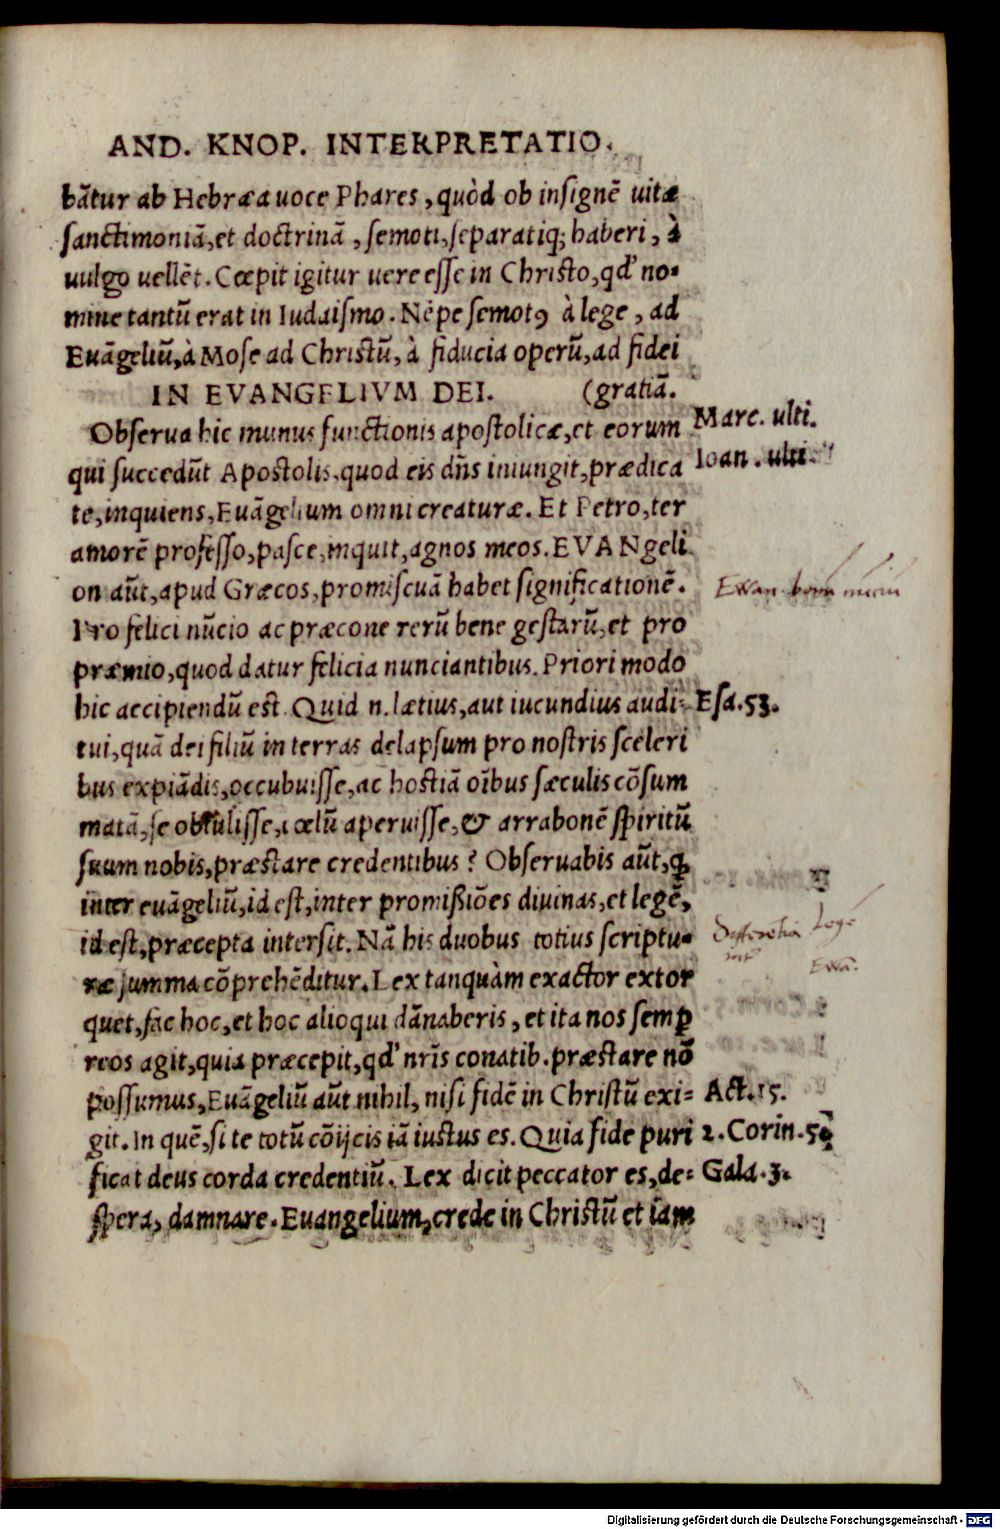 AND. KNOP. INTERPRETATIO.
bãtur ab Hebræa uoce Phares, quòd ob insignẽ uitæ
sanctimoniã, et doctrinã, semoti, separatiq; haberi, à
uulgo uellẽt. Cœpit igitur uere esse in Christo, qđ no-
mine tantũ erat in Iudaismo. Nẽpe semotꝰ à lege, ad
Euãgeliũ, à Mose ad Christũ, à fiducia operũ, ad fidei
IN EVANGELIVM DEI. (gratiã.
Obserua hic munus functionis apostolicæ, et eorum Marc. ulti.
qui succedũt Apostolis, quod eis dñs iniungit, prædica Ioan. ulti.
te, inquiens, Euãgelium omni creaturæ. Et Petro, ter
amorẽ professo, pasce, inquit, agnos meos. EVANgeli
on aũt, apud Græcos, promiscuã habet significationẽ.
Pro felici nũcio ac præcone rerũ bene gestarũ, et pro
præmio, quod datur felicia nunciantibus. Priori modo
hic accipiendũ est. Quid n. lætius, aut iucundius audi- Esa. 53.
tui, quã dei filiũ in terras delapsum pro nostris sceleri
bus expiãdis, occubuisse, ac hostiã oĩbus sæculis cõsum
matã, se obtulisse, cœlũ aperuisse, & arrabonẽ spiritũ
suum nobis, præstare credentibus? Obseruabis aũt, ꝙ
inter euãgeliũ, id est, inter promißiões diuinas, et legẽ,
id est, præcepta intersit. Nã his duobus totius scriptu-
ræ summa cõprehẽditur. Lex tanquàm exactor extor
quet, fac hoc, et hoc alioqui dãnaberis, et ita nos semꝑ
reos agit, quia præcepit, qđ nr̃is conatib. præstare nõ
possumus, Euãgeliũ aũt nihil, nisi fidẽ in Christũ exi= Act. 15.
git. In quẽ, si te totũ cõijcis iã iustus es. Quia fide puri 2. Corin. 5
ficat deus corda credentiũ. Lex dicit peccator es, de= Gala. 3.
spera, damnare. Euangelium, crede in Christũ et iam
Differentia Lege
Digitalisierung gefördert durch die Deutsche Forschungsgemeinschaft - DFG